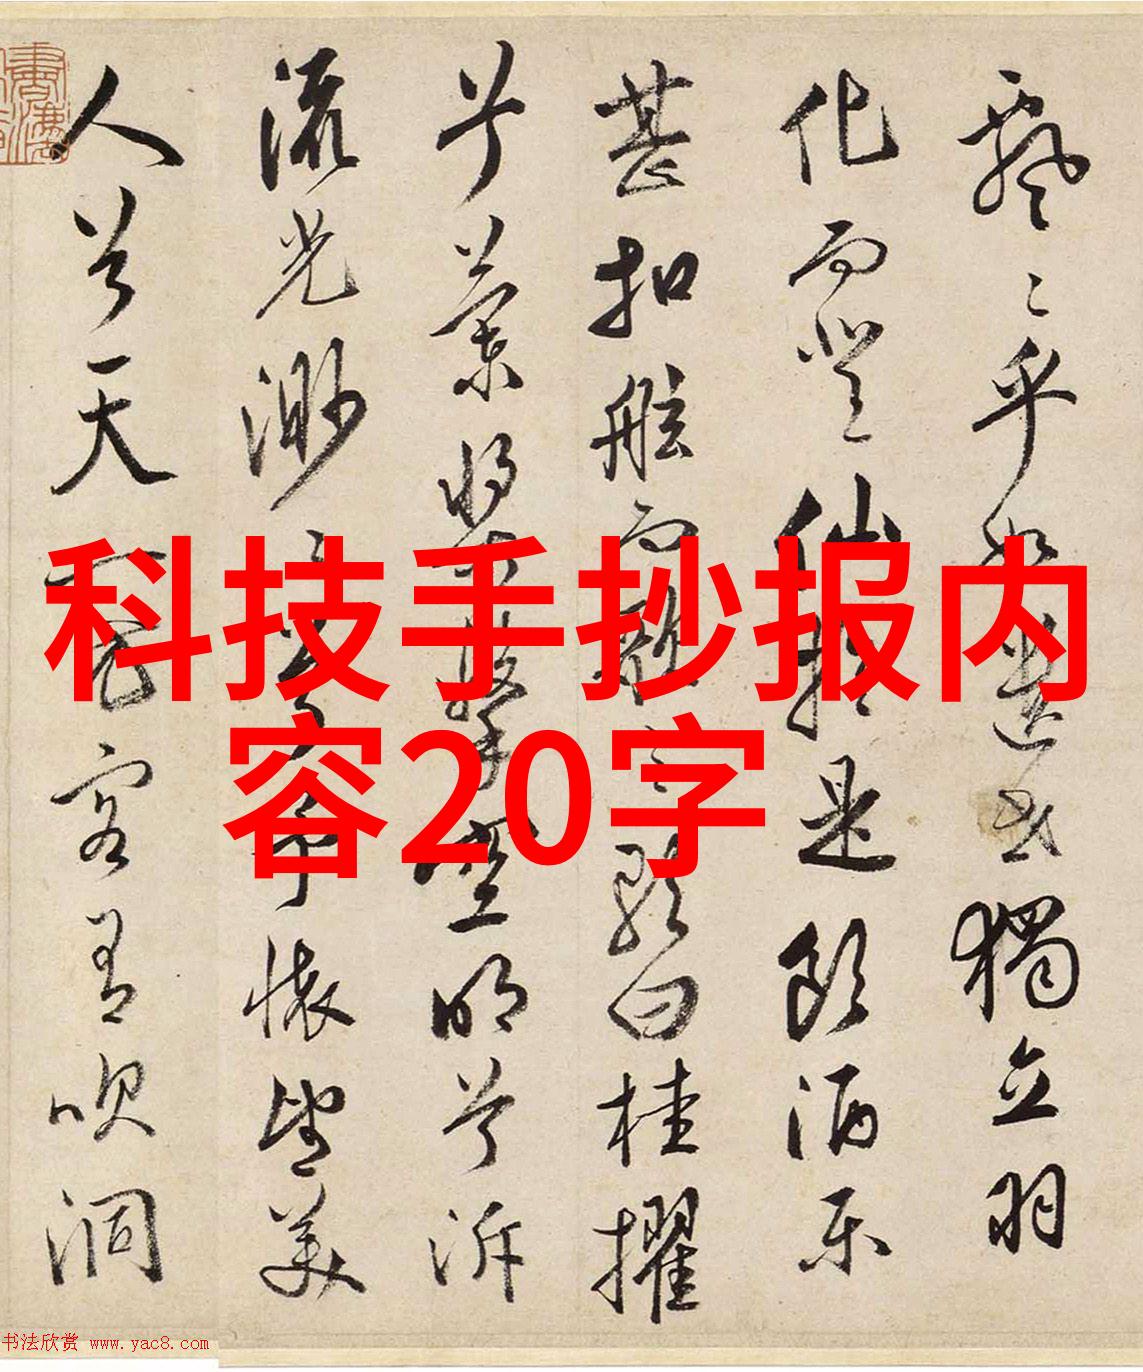 飄〻乎如遺世獨立羽
化而登仙於是飲酒樂
甚扣舷而歌之歌曰桂擢
兮蘭槳擊空明兮泝
流光渺〻兮予懷望美
人兮天一方客有吹洞
科技手抄报内
容20字
书法欣赏 www.yac8.com